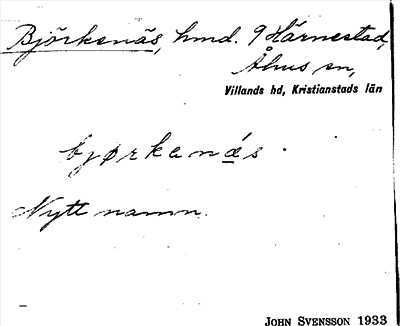 Björkenäs, hmd. 9 Härnestad,
Åhus sn,
Villands hd, Kristianstads län
bjørkenǽs.
Nytt namn.
JOHN SVENSSON 1933